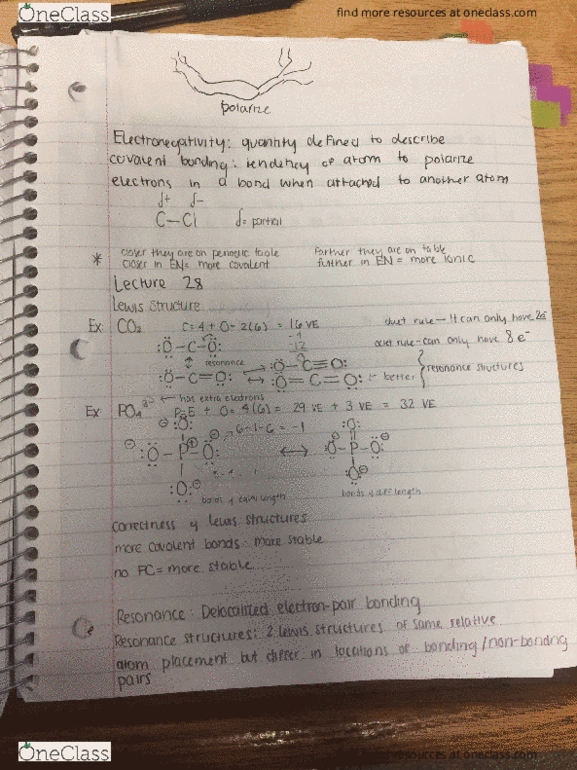 OneClass
find more resources at oneclass.com
polarize
Electronegativity: quantity defined to describe
covalent bonding: tendency of atom to polarize
electrons in a bond when attached to another atom
δ+ δ-
C—Cl δ= partial
* closer they are on periodic table farther they are on table
closer in EN= more covalent further in EN = more ionic
Lecture 28
Lewis Structure
Ex: CO₂ C=4 + O=2(6) = 16 VE duet rule— H can only have 2e⁻
octet rule=can only have 8 e⁻
:Ö—C—Ö: -12
resonance
:Ö—C=O: ↔ :Ö=C=O: better resonance structures
has extra electrons
Ex: PO₄³⁻ P=5 + O=4(6) = 29 VE + 3 VE = 32 VE
6-1-6 = -1
:Ö—P—Ö: ↔ :Ö—P—Ö:
:O:
bonds of equal length bonds of diff length
correctness of lewis structures
more covalent bonds = more stable
no FC= more stable
Resonance: Delocalized electron-pair bonding
Resonance structures: 2 lewis structures of same relative
atom placement but differ in locations of bonding/non-bonding
pairs
OneClass
find more resources at oneclass.com